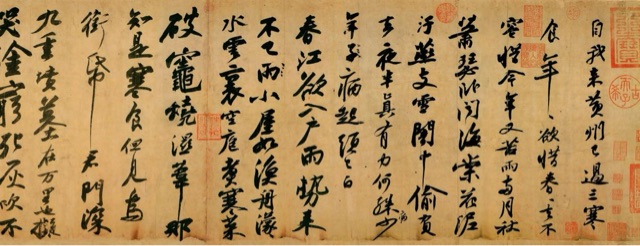 自我来黄州已過三寒
食年〻欲惜春〻去不
容惜今年又苦雨兩月秋
蕭瑟卧聞海棠花泥
汙燕支雪闇中偷負
去夜半真有力何殊病少
年子病起頭已白
春江欲入户雨勢来
不已雨小屋如漁舟濛〻
水雲裏空庖煮寒菜
破竈燒濕葦那
知是寒食但見烏
銜帋君門深
九重墳墓在万里也擬
哭塗窮死灰吹不